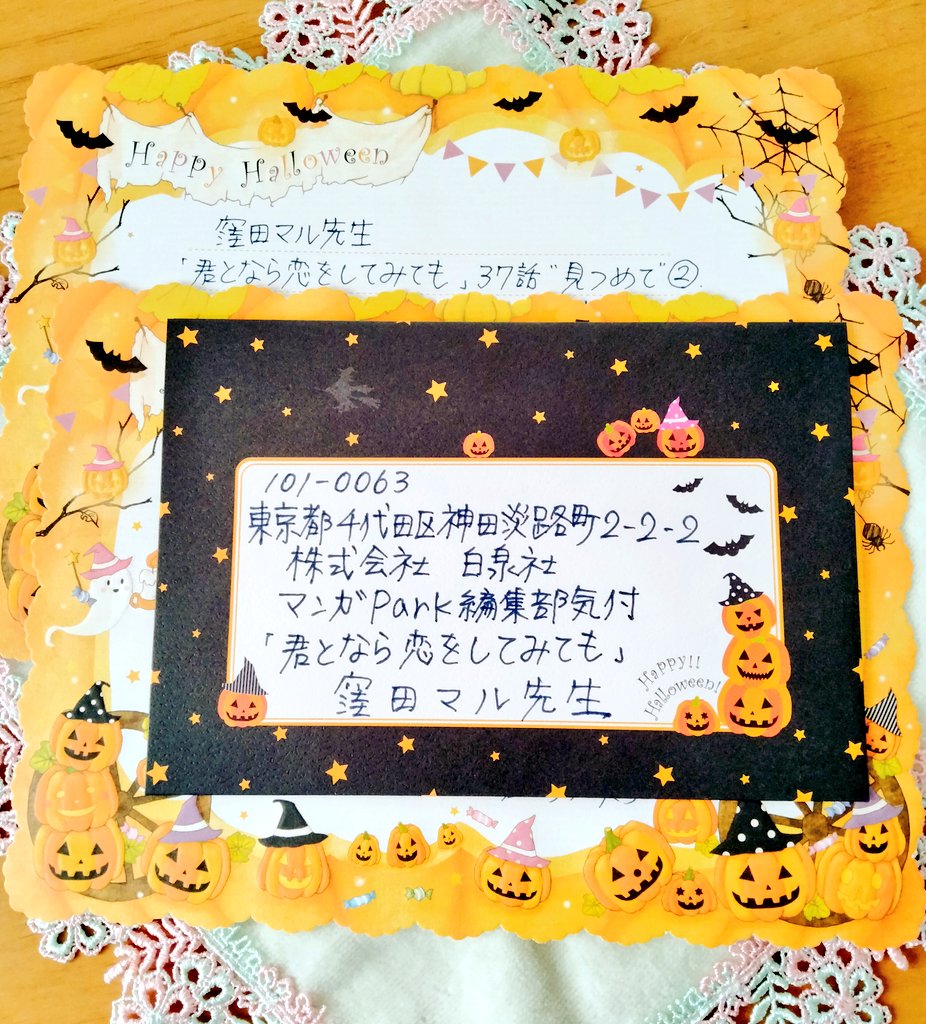 Happy Halloween
窪田マル先生
「君となら恋をしてみても」37話"見つめて②.
101-0063
東京都千代田区神田淡路町2-2-2
株式会社 白泉社
マンガPark編集部気付
「君となら恋をしてみても」
窪田マル先生
Happy!!
Halloween!